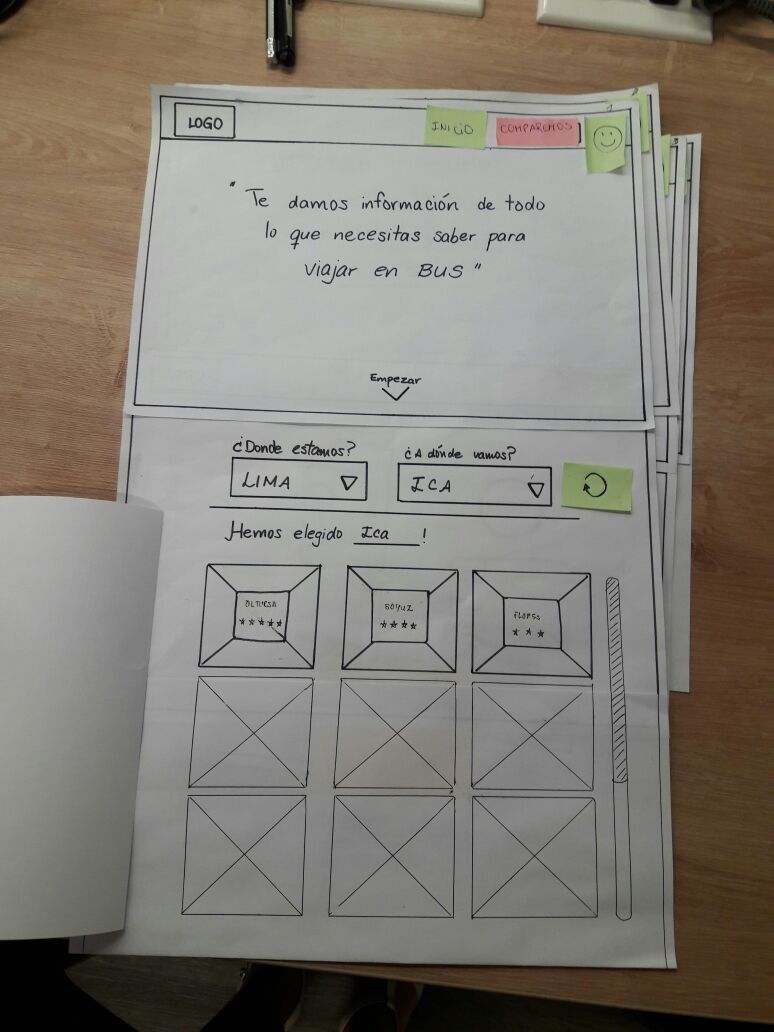 LOGO
INICIO
COMPAREMOS
"Te damos información de todo
lo que necesitas saber para
viajar en BUS"
Empezar
¿Donde estamos?
¿A dónde vamos?
LIMA
ICA
Hemos elegido Ica !
SOYUZ
FLORES